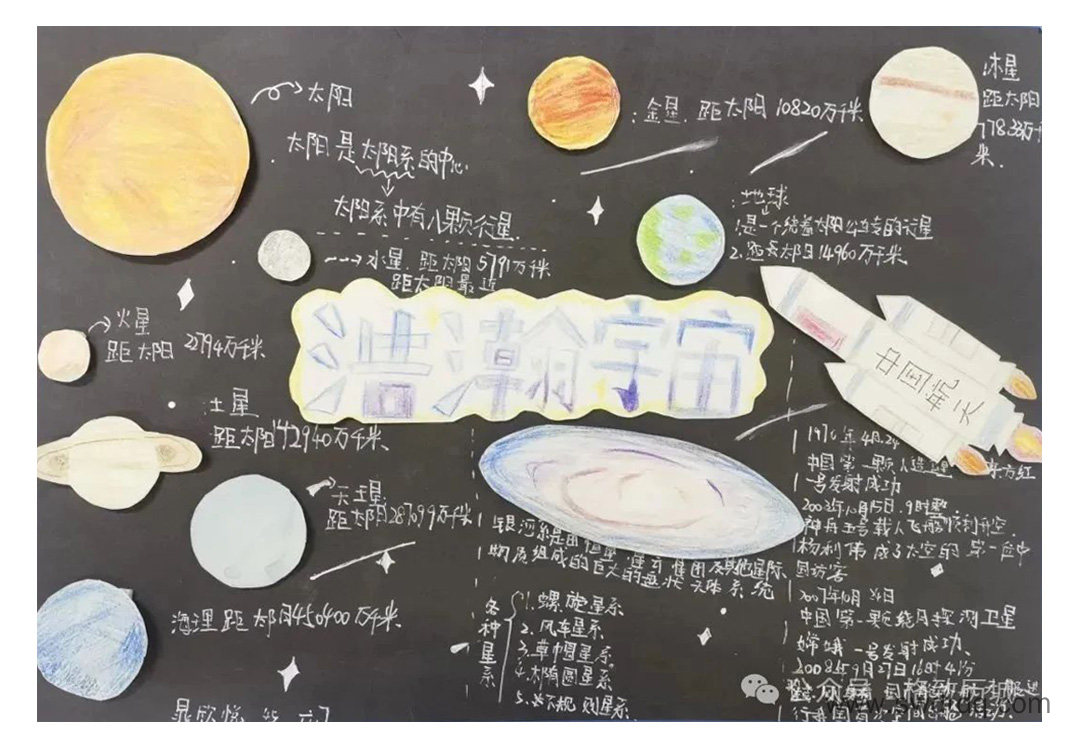 太阳
太阳是太阳系的中心
太阳系中有八颗行星
水星.距太阳5791万千米
距太阳最近
金星.距太阳10820万千米
木星
距太阳
77833万千
米.
:地球
1.是一个绕着太阳公转的行星
2.距太阳14960万千米.
火星
距太阳 22794万千米
浩瀚宇宙
中国航天
:土星
距太阳142940万千米.
天王星
距太阳287099万千米
海理距太阳450400万千米.
银河系是由恒星
物质组成的巨大的盘状天体系统
各种星系
1.螺旋星系
2.风车星系
3.草帽星系
4.椭圆星系
5.不规则星系
1970年4月24
中国第一颗人造
东方红
一号发射成功
2003年10月15日.9时整
神舟五号载人飞船顺利升空
杨利伟成了太空的第一位中
国访客
2007年10月24日
中国第一颗绕月探测卫星
嫦娥一号发射成功.
2008年9月27日16时41分
公众号